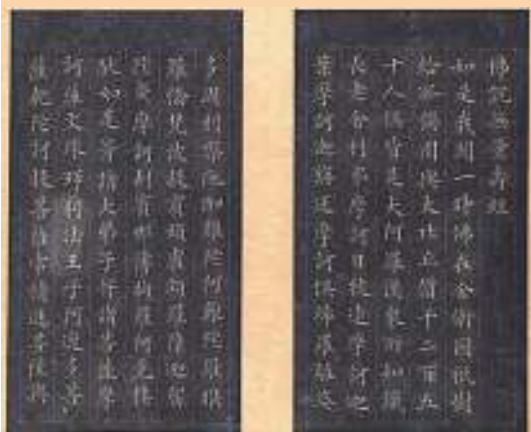 佛說無量壽經
如是我聞一時佛在舍衛國祇樹
給孤獨園與大比丘僧千二百五
十人俱皆是大阿羅漢眾所知識
長老舍利弗摩訶目犍連摩訶迦
葉摩訶迦旃延摩訶俱絺羅離婆
多周利槃陀伽難陀阿難陀羅睺
羅憍梵波提賓頭盧頗羅墮迦留
陀夷摩訶劫賓那薄拘羅阿㝹樓
馱如是等諸大弟子并諸菩薩摩
訶薩文殊師利法王子阿逸多菩
薩乾陀訶提菩薩常精進菩薩與